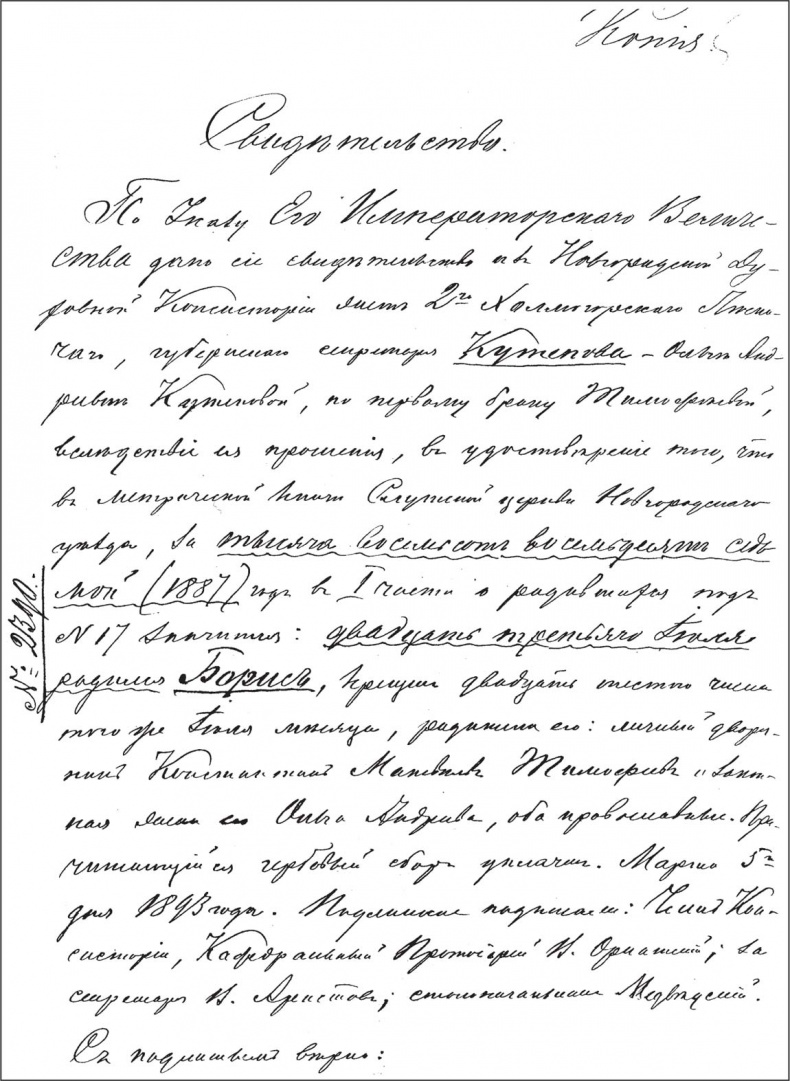 Копія
Свидѣтельство.
По Указу Его Императорскаго Величе-
ства дано сіе свидѣтельство изъ Новгородской Ду-
ховной Консисторіи женѣ 2го Холмогорскаго Лѣсни-
чаго, губернскаго секретаря Кутепова – Ольгѣ Анд-
реевнѣ Кутеповой, по первому браку Тимофеевой,
вслѣдствіе ея прошенія, въ удостовѣреніе того, что
въ метрической книгѣ церкви Новгородскаго
уѣзда, за тысяча восемьсотъ восемьдесятъ седь
мой (1887) годъ въ I части о родившихся подъ
№ 17 значится: двадцать третьяго Іюля
родился Борисъ, крещенъ двадцать шестого числа
того же Іюля мѣсяца, родители его: личный дворя-
нинъ Константинъ Матвѣевъ Тимофеевъ и закон-
ная жена его Ольга Андреева, оба православные. При-
читающійся гербовый сборъ уплаченъ. Марта 5го
дня 1893 года. Подлинное подписали: Членъ Кон-
систоріи, Кафедральный Протоіерей В. Орнатскій; за
секретаря В. Аристовъ; столоначальникъ Медвѣдскій.
Съ подлиннымъ вѣрно:
№ 2390.